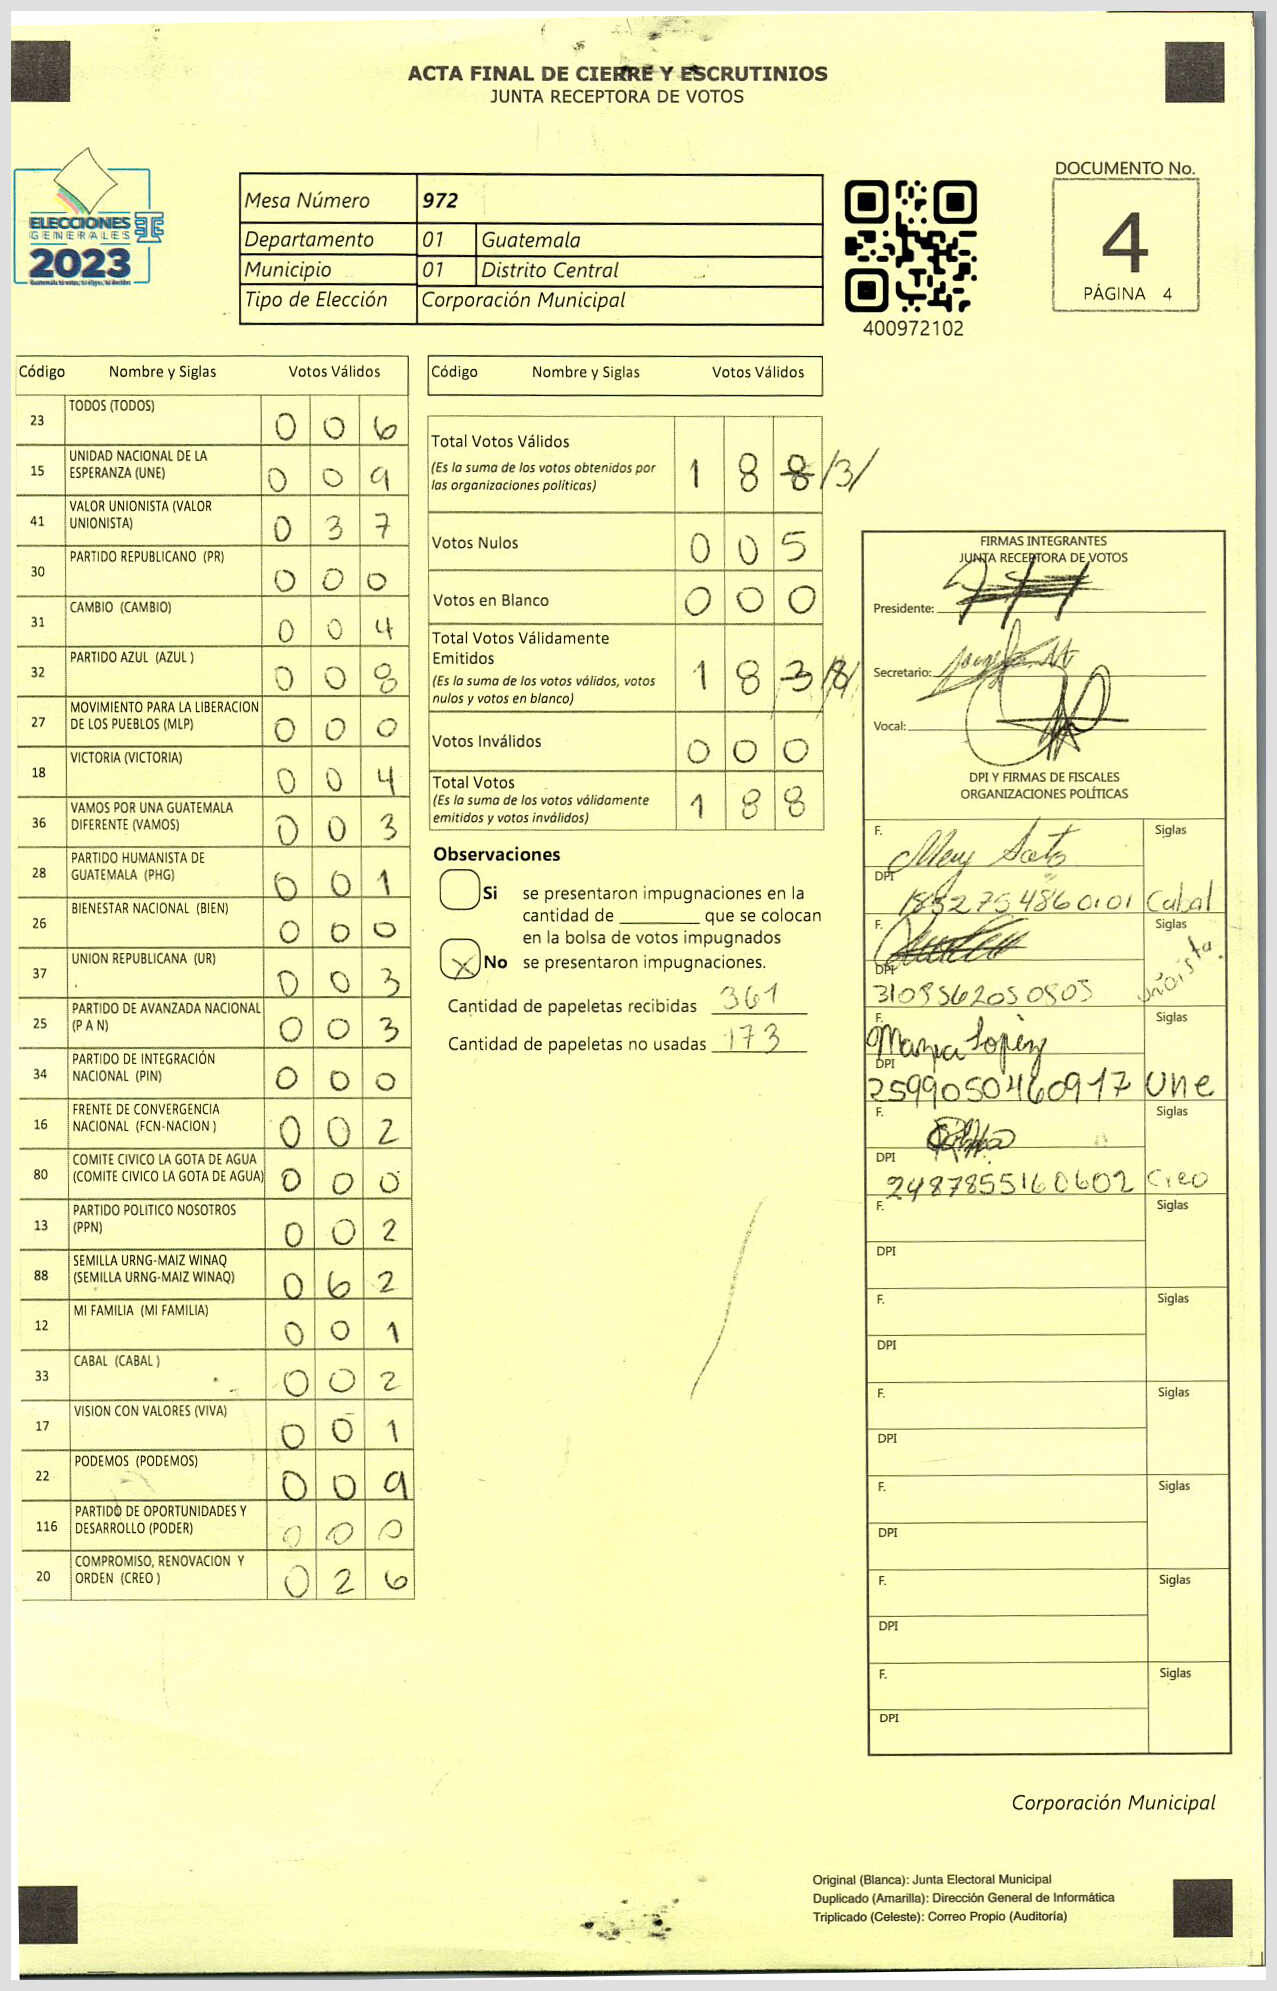 ACTA FINAL DE CIERRE Y ESCRUTINIOS
JUNTA RECEPTORA DE VOTOS
ELECCIONES
GENERALES
2023
Mesa Número 972
Departamento 01 Guatemala
Municipio 01 Distrito Central
Tipo de Elección Corporación Municipal
400972102
DOCUMENTO No.
4
PÁGINA 4
Código Nombre y Siglas Votos Válidos
23 TODOS (TODOS) 0 0 6
15 UNIDAD NACIONAL DE LA
ESPERANZA (UNE) 0 0 9
41 VALOR UNIONISTA (VALOR
UNIONISTA) 0 3 7
30 PARTIDO REPUBLICANO (PR) 0 0 0
31 CAMBIO (CAMBIO) 0 0 4
32 PARTIDO AZUL (AZUL ) 0 0 8
27 MOVIMIENTO PARA LA LIBERACION
DE LOS PUEBLOS (MLP) 0 0 0
18 VICTORIA (VICTORIA) 0 0 4
36 VAMOS POR UNA GUATEMALA
DIFERENTE (VAMOS) 0 0 3
28 PARTIDO HUMANISTA DE
GUATEMALA (PHG) 0 0 1
26 BIENESTAR NACIONAL (BIEN) 0 0 0
37 UNION REPUBLICANA (UR) 0 0 3
25 PARTIDO DE AVANZADA NACIONAL
(P A N) 0 0 3
34 PARTIDO DE INTEGRACIÓN
NACIONAL (PIN) 0 0 0
16 FRENTE DE CONVERGENCIA
NACIONAL (FCN-NACION ) 0 0 2
80 COMITE CIVICO LA GOTA DE AGUA
(COMITE CIVICO LA GOTA DE AGUA) 0 0 0
13 PARTIDO POLITICO NOSOTROS
(PPN) 0 0 2
88 SEMILLA URNG-MAIZ WINAQ
(SEMILLA URNG-MAIZ WINAQ) 0 6 2
12 MI FAMILIA (MI FAMILIA) 0 0 1
33 CABAL (CABAL ) 0 0 2
17 VISION CON VALORES (VIVA) 0 0 1
22 PODEMOS (PODEMOS) 0 0 9
116 PARTIDO DE OPORTUNIDADES Y
DESARROLLO (PODER) 0 0 0
20 COMPROMISO, RENOVACION Y
ORDEN (CREO ) 0 2 6
Código Nombre y Siglas Votos Válidos
Total Votos Válidos
(Es la suma de los votos obtenidos por
las organizaciones políticas) 1 8 8 /3/
Votos Nulos 0 0 5
Votos en Blanco 0 0 0
Total Votos Válidamente
Emitidos
(Es la suma de los votos válidos, votos
nulos y votos en blanco) 1 8 3 /8/
Votos Inválidos 0 0 0
Total Votos
(Es la suma de los votos válidamente
emitidos y votos inválidos) 1 8 8
Observaciones
Si se presentaron impugnaciones en la
cantidad de ________ que se colocan
en la bolsa de votos impugnados
X No se presentaron impugnaciones.
Cantidad de papeletas recibidas 361
Cantidad de papeletas no usadas 173
FIRMAS INTEGRANTES
JUNTA RECEPTORA DE VOTOS
Presidente:
Secretario:
Vocal:
DPI Y FIRMAS DE FISCALES
ORGANIZACIONES POLÍTICAS
F. Mery Soto Siglas
DPI 1832754860101 Cabal
F. Siglas
DPI 3108562050805
F. Marya Lopéz Siglas
DPI 2599050460917 Une
F. Siglas
DPI 2487855160602 Creo
F. Siglas
DPI
F. Siglas
DPI
F. Siglas
DPI
F. Siglas
DPI
F. Siglas
DPI
F. Siglas
DPI
Corporación Municipal
Original (Blanca): Junta Electoral Municipal
Duplicado (Amarilla): Dirección General de Informática
Triplicado (Celeste): Correo Propio (Auditoría)